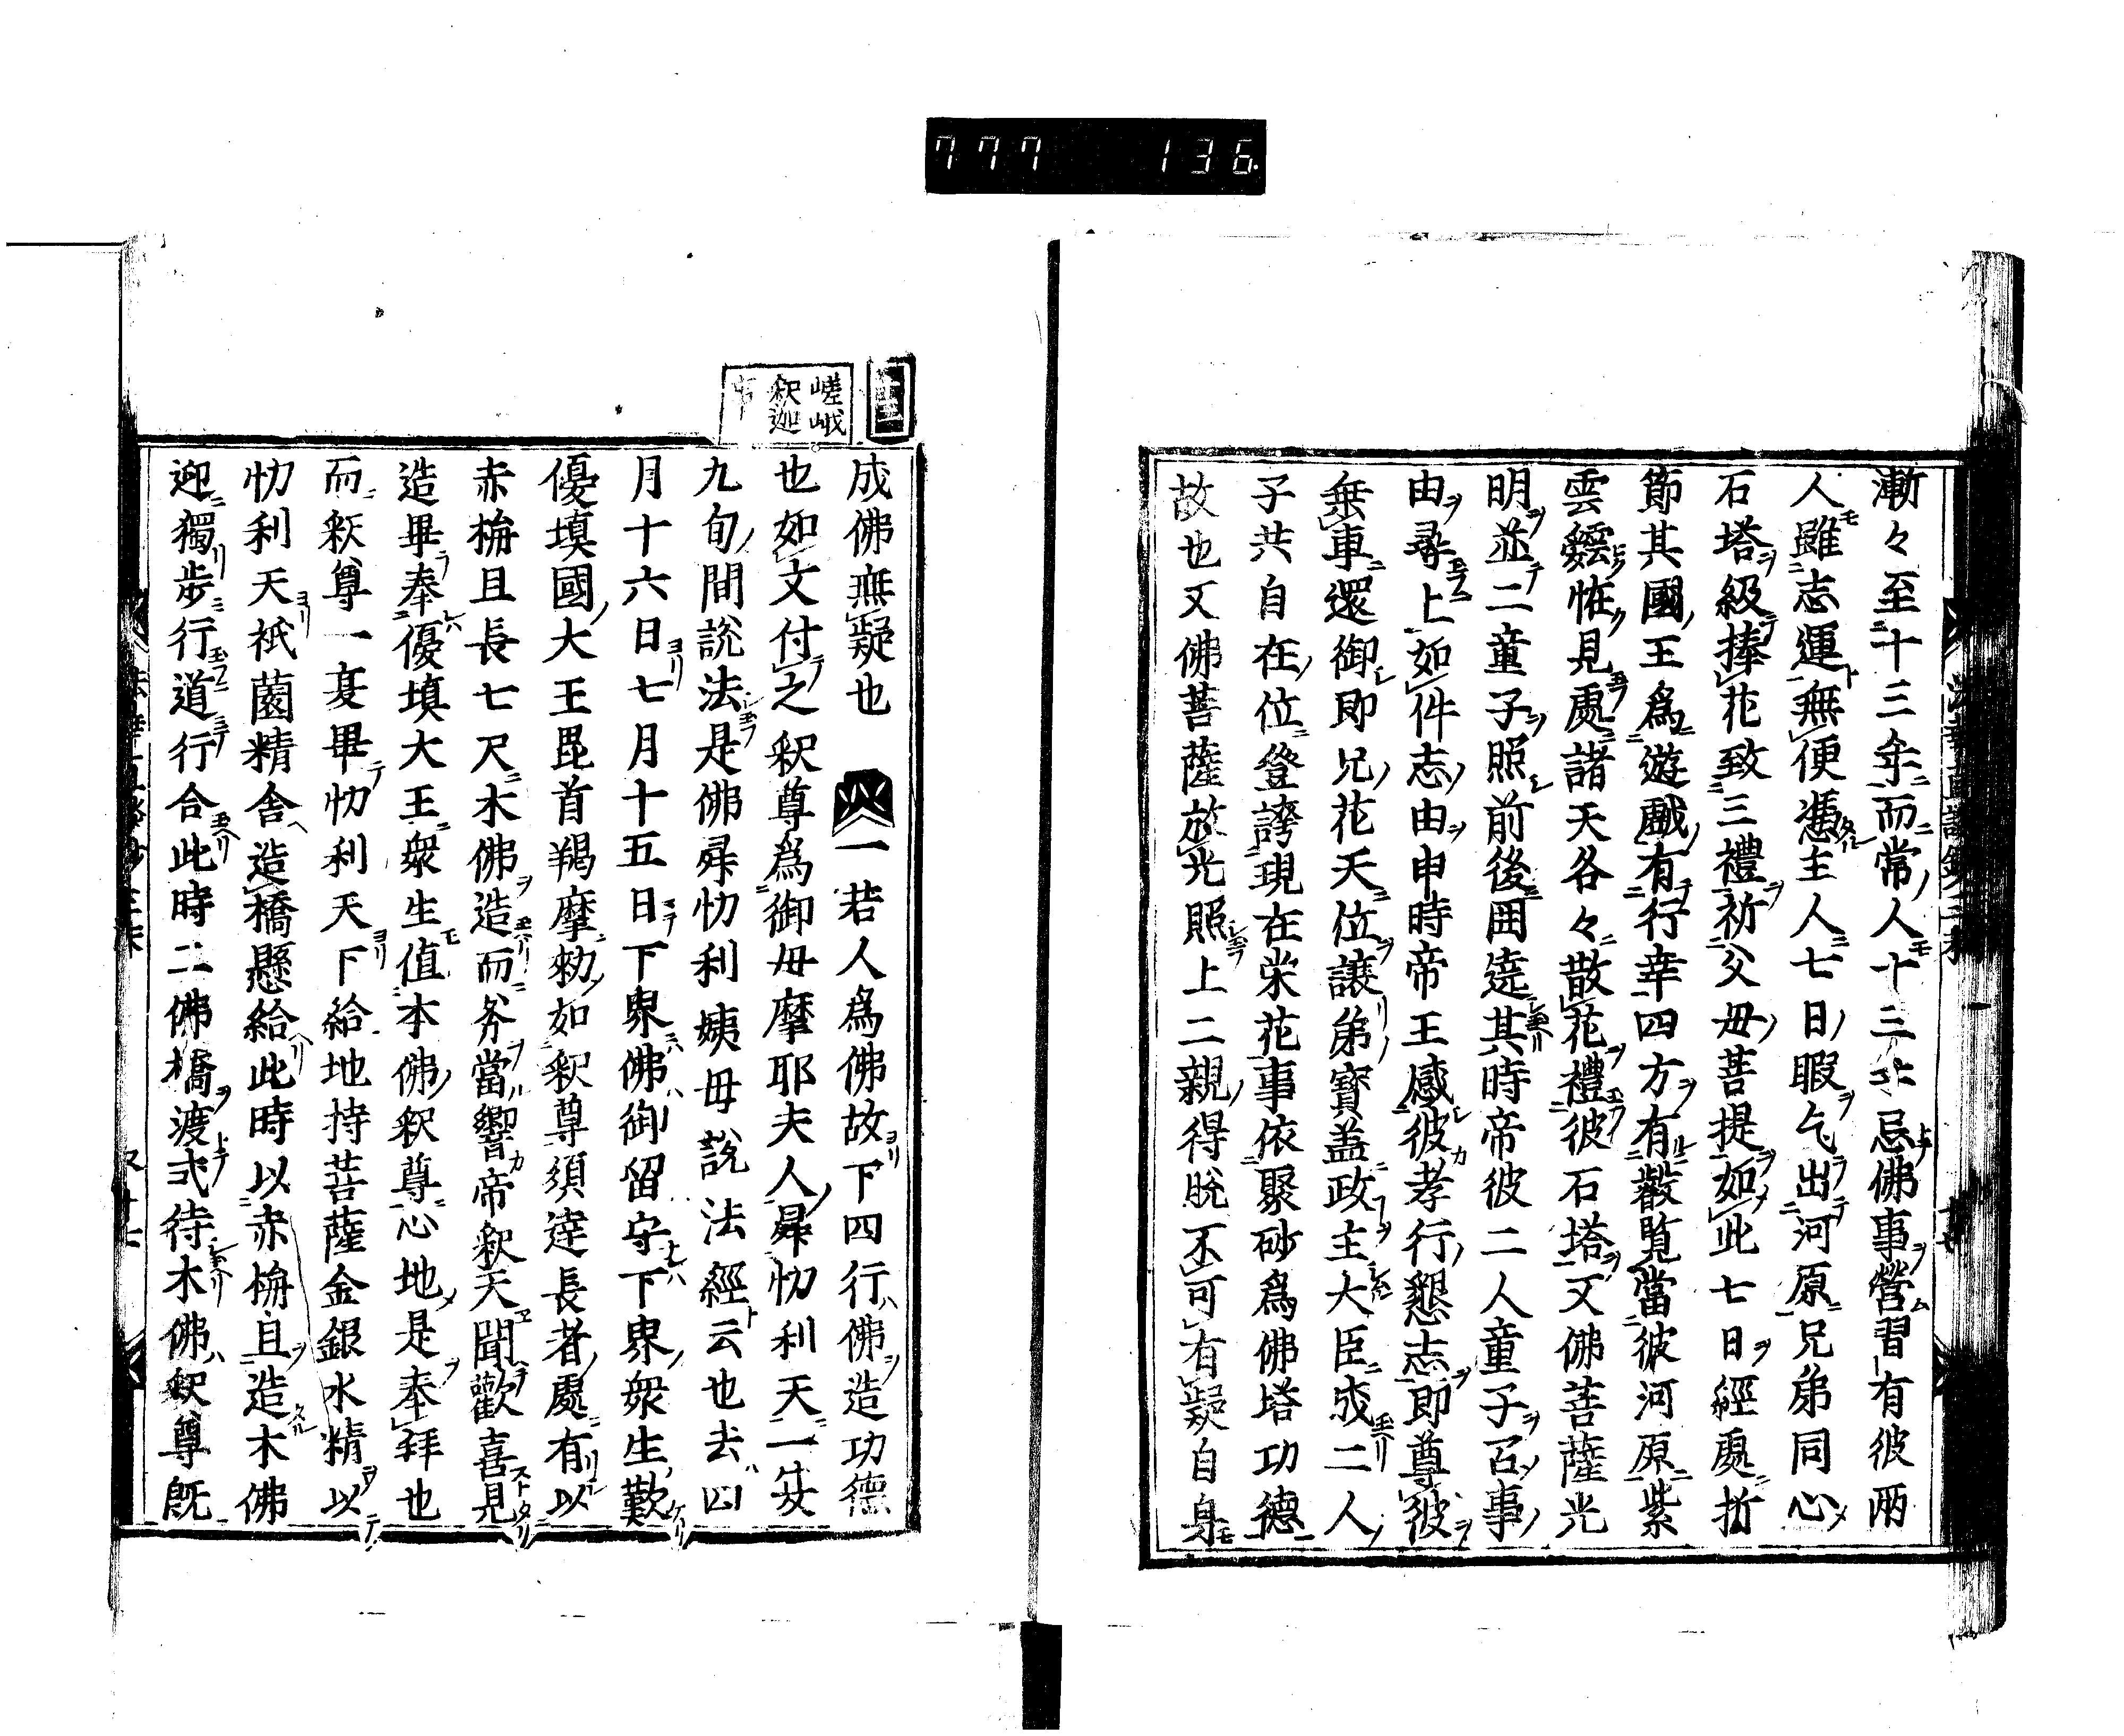 777 136
漸々至十三年而常人十三年忌佛事營習有彼两
人雖志運無便憑主人七日暇乞出河原兄弟同心
石塔級捧花致三禮祈父母菩提如此七日經處折
節其國王爲遊戲有行幸四方有叡覧當彼河原紫
雲靉恠見處諸天各々散花禮彼石塔又佛菩薩光
明並二童子照前後囲遶其時帝彼二人童子召事
由尋上如件志由申時帝王感彼孝行懇志即尊彼
乗車還御即兄花天位譲弟寳盖政主大臣成二人
子共自在位登誇現在栄花事依聚砂爲佛塔功德
故也又佛菩薩放光照上二親得脱不可有疑自身
嵯峨
釈迦
事
成佛無疑也 一若人爲佛故下四行佛造功德
也如文付之釈尊爲御母摩耶夫人昇忉利天一安
九旬間説法是佛昇忉利姨母説法經云也去四
月十六日七月十五日下界佛御留守下界衆生歎
優填國大王毘首羯摩勅如釈尊須達長者處有以
赤栴且長七尺木佛造而务當響帝釈天聞歡喜見
造畢奉優填大王衆生値本佛釈尊心地是奉拜也
而釈尊一夏畢忉利天下給地持菩薩金銀水精以
忉利天祇薗精舎造橋懸給此時以赤栴且造木佛
迎獨歩行道行合此時二佛橋渡弐待木佛釈尊既